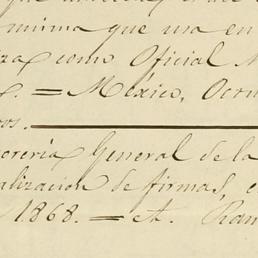 misma que usa en
como Oficial
= México, Octu
General de la
alizacion de firmas,
1868. = A. Ram